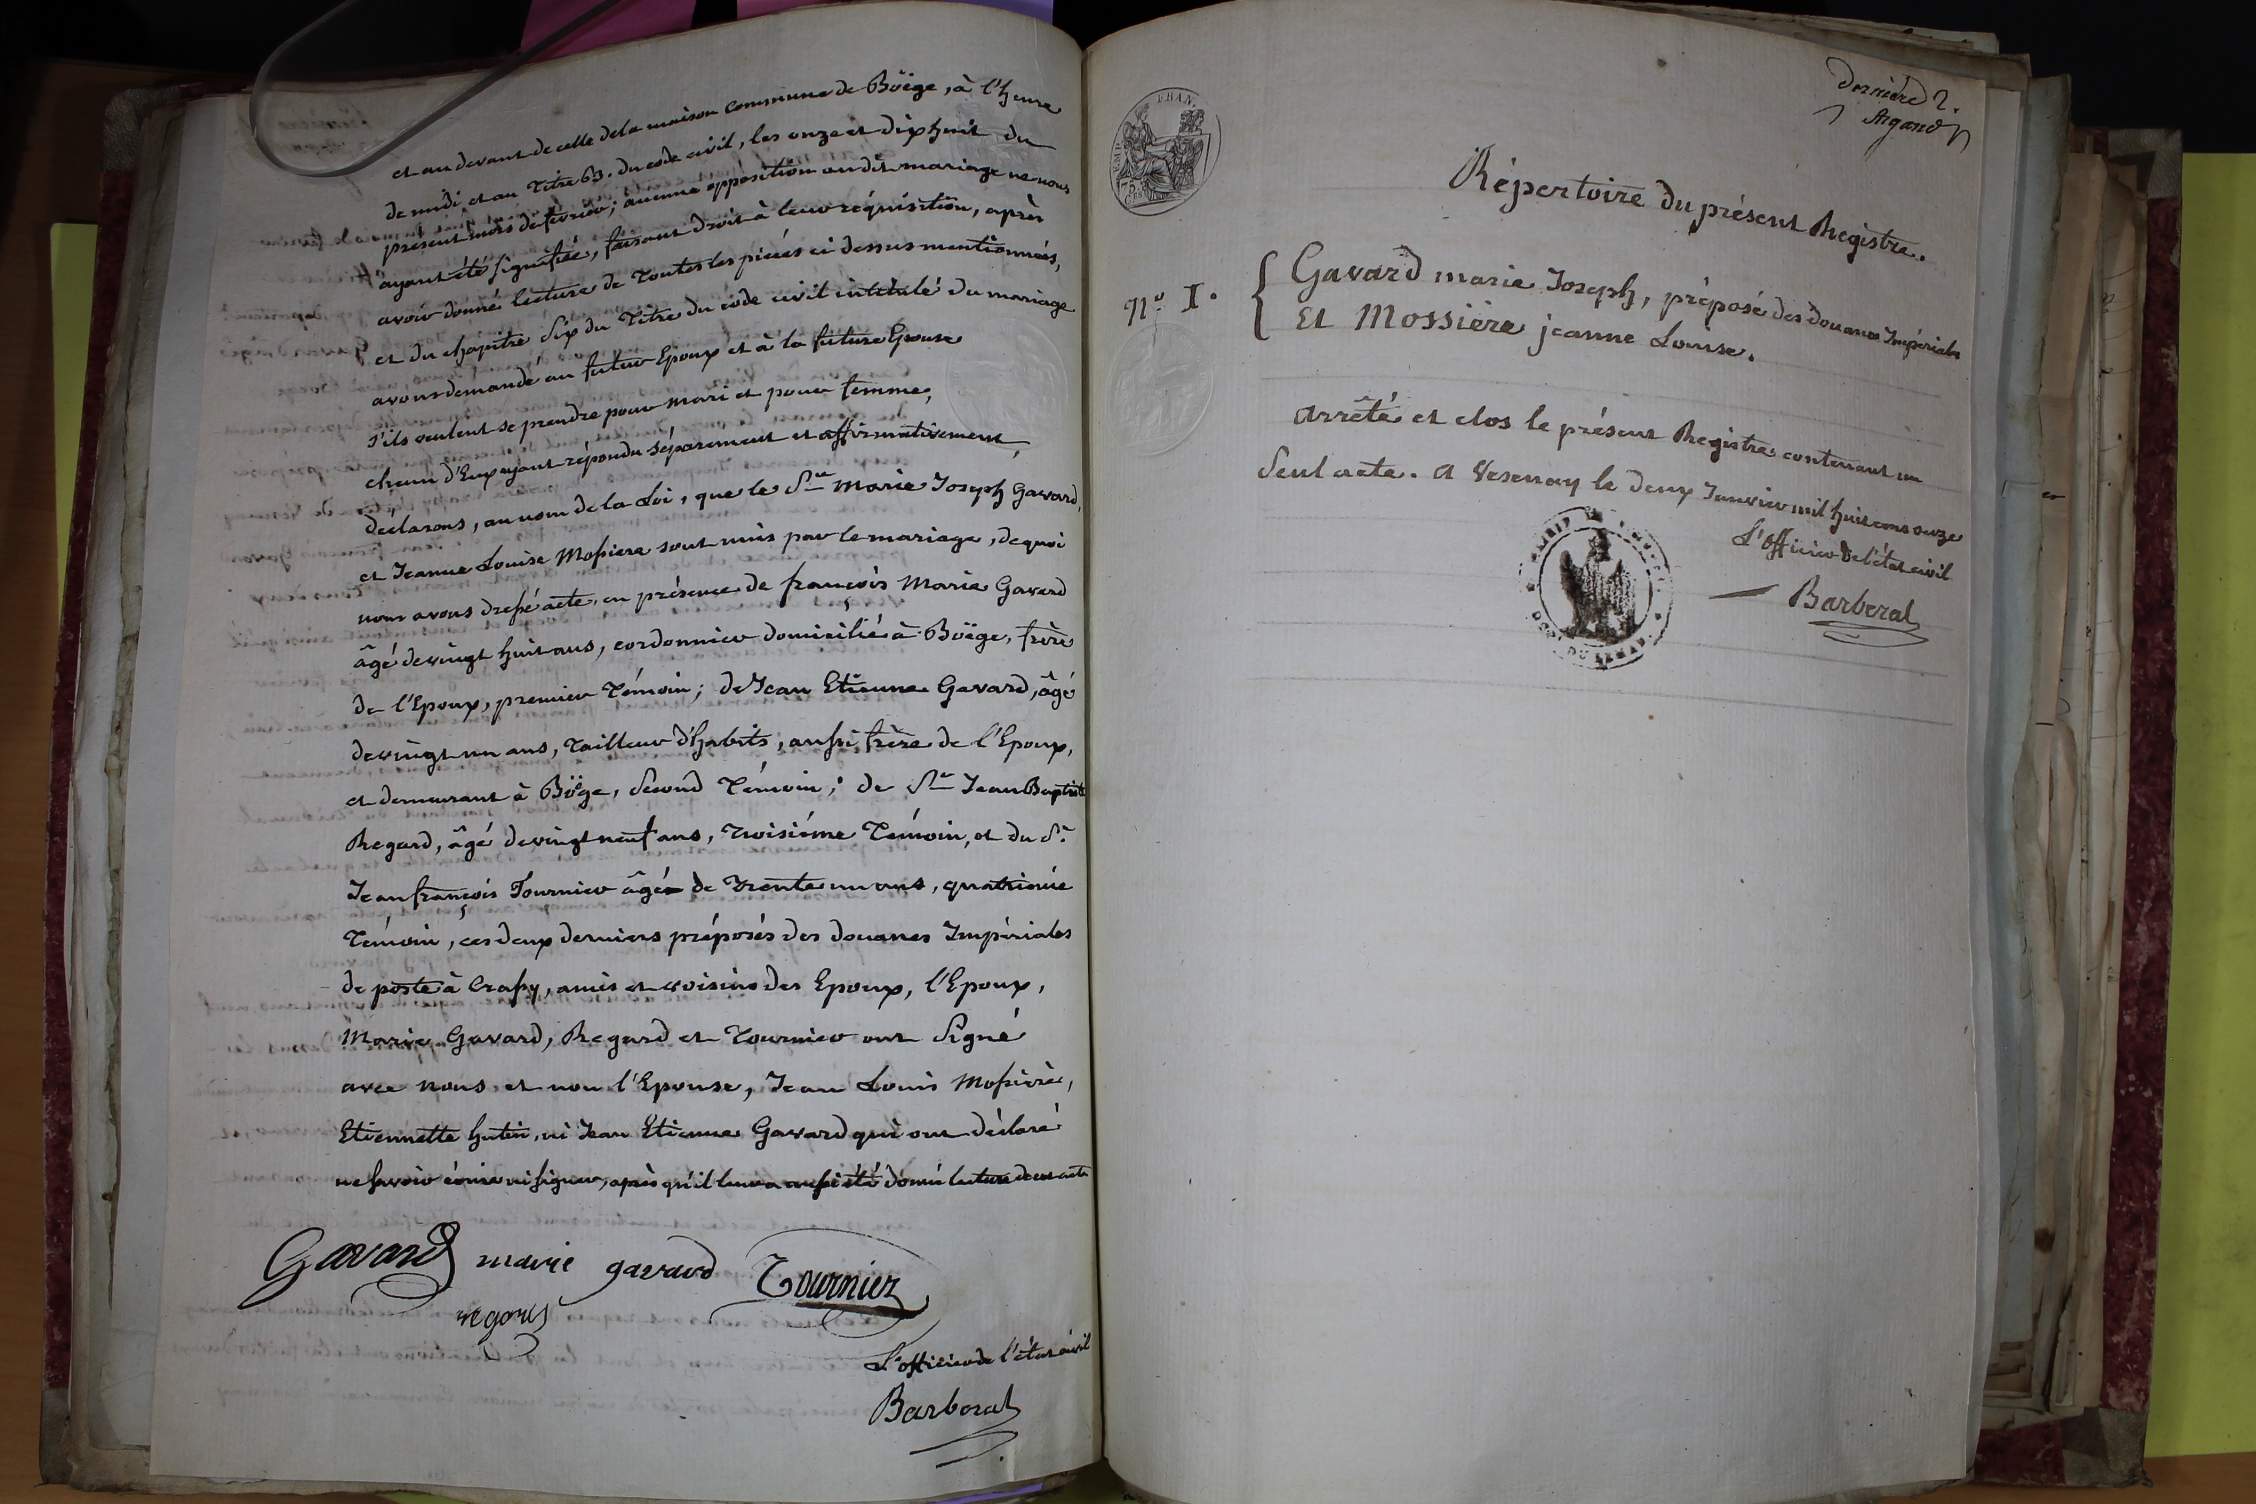 et au devant de celle dela maison commune de Böège, à l'heure
de midi et au titre 63. du code civil, les onze et dix huit du
présent mois de fevrier; aucune opposition au dit mariage ne nous
ayant été signifiée, faisant droit à leur réquisition, après
avoir donné lecture de toutes les pièces ci dessus mentionnées,
et du chapitre six du titre du code civil intitulé du mariage
avons demandé au futur Epoux et à la future Epouse
s'ils veulent se prendre pour mari et pour femme,
chacun d'Eux ayant répondu séparement et affirmativement,
déclarons, au nom de la Loi, que le Sieur Marie Joseph Gavard,
et Jeanne Louise Mossiere sont unis par le mariage, de quoi
nous avons dressé acte, en présence de françois Marie Gavard
âgé de vingt huit ans, cordonnier domicilié à Boëge, frère
de l'Epoux, premier Témoin; de Jean Etienne Gavard, âgé
de vingt un ans, Tailleur d'habits, aussi frère de l'Epoux,
et demeurant à Böge, Second Témoin; de Sr Jean Baptiste
Regard, âgé de vingt neuf ans, troisiéme Témoin, et du Sr.
Jean françois Tournier âgé de trente un ans, quatrième
Témoin, ces deux derniers préposés des douanes Impériales
de poste à Crassy, amis et voisins des Epoux, l'Epoux,
Marie Gavard, Regard et Tournier ont Signé
avec nous et non l'Epouse, Jean Louis Mossière,
Etiennette hutin, ni Jean Etienne Gavard qui ont déclaré
ne savoir écrire ni signer, après qu'il leur a aussi été donné lecture de cet acte
Gavard marie gavard Tournier
regard
L'officier de l'état civil
Barberat
dernière 2.
Argand
EMP. FHAN.
75
Répertoire du présent Registre.
N.o I. { Gavard marie Joseph, préposé des Douanes Impériales
Et Mossière jeanne Louise.
Arrêté et clos le présent Registre contenant un
Seul acte. A Vesenay le deux Janvier mil huit cent onze
L'officier de l'état civil
Barberat
DU LEMAN